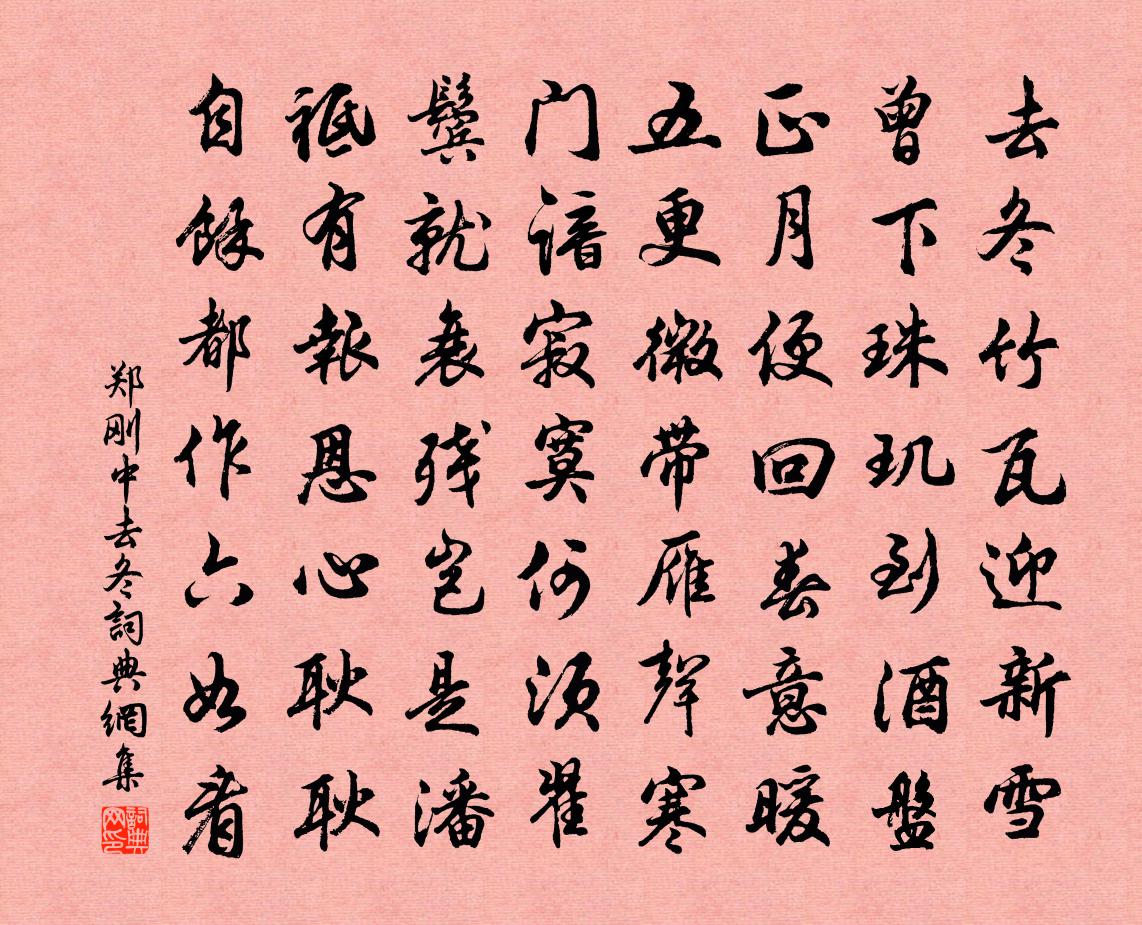 去冬竹瓦迎新雪
曾下珠玑到酒盤
正月便回春意暖
五更微带雁聲寒
门谙寂寞何须翟
鬓就衰残岂是潘
祗有報恩心耿耿
自餘都作六如看
郑刚中去冬詞典網集
詞典网印